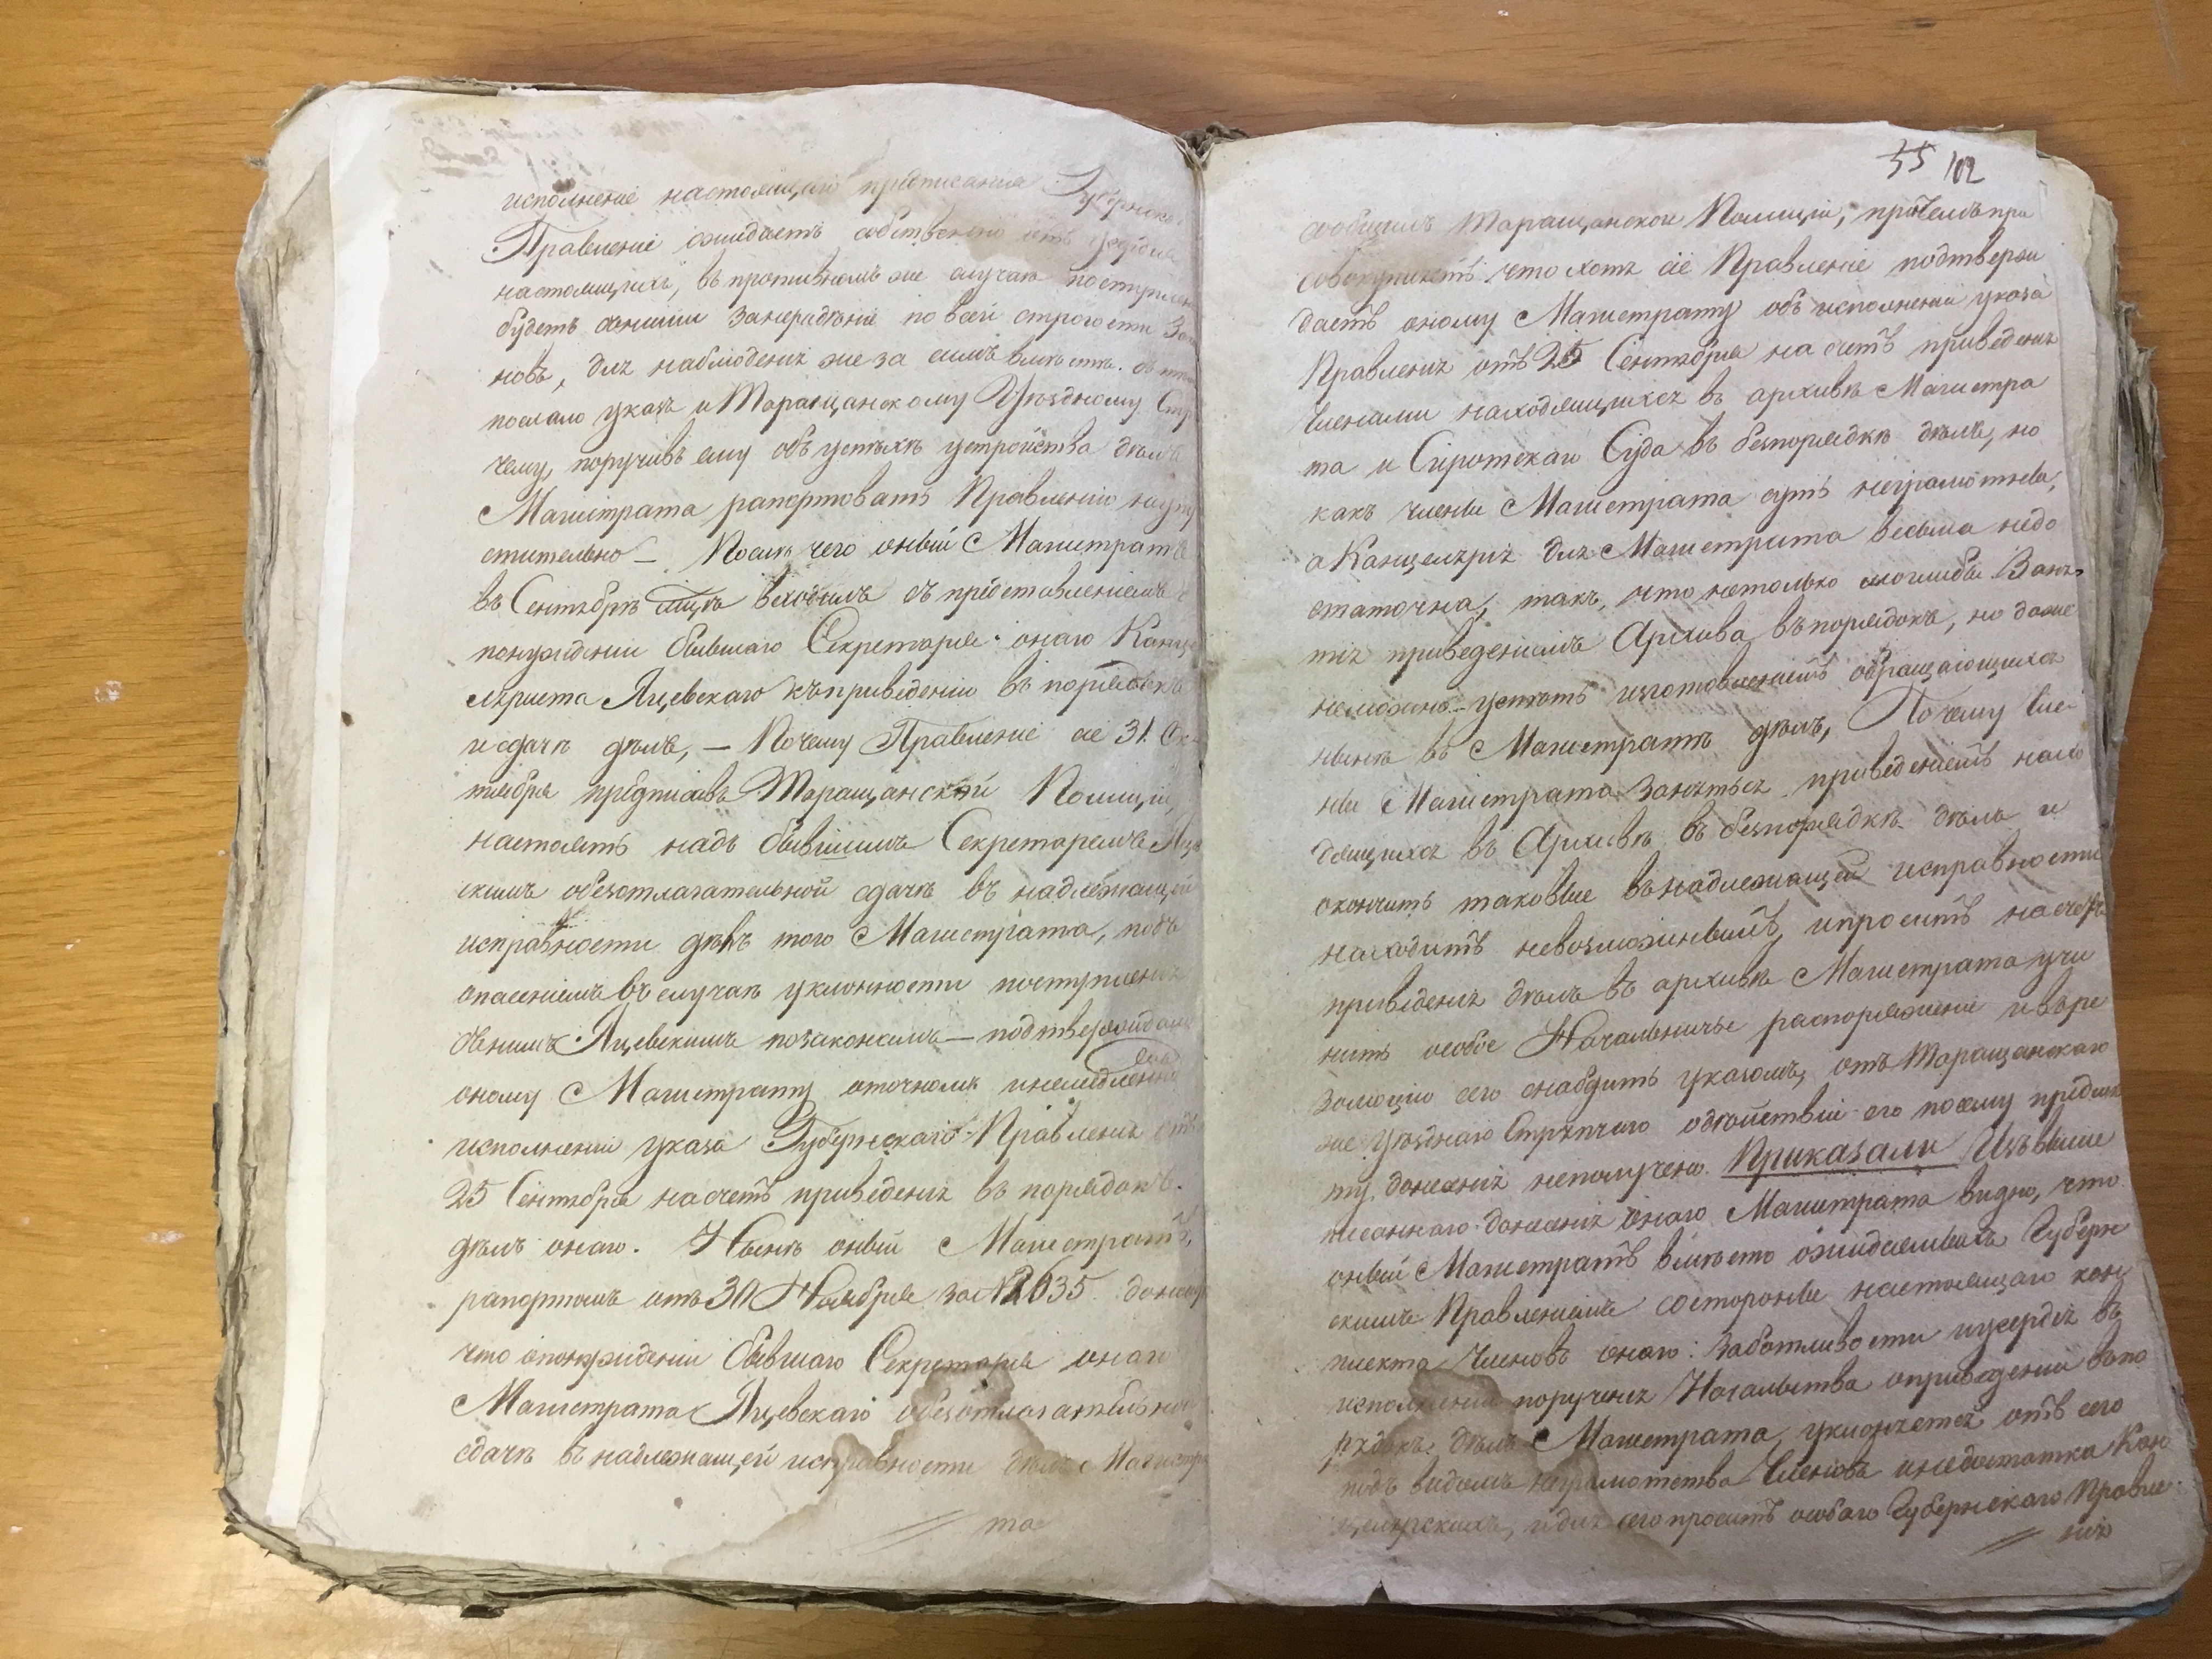 исполненіе настоящаго предписанія Губернское
Правленіе ожидаетъ собственно отъ усердія
настоящихъ, въ противномъ же случаѣ поступлено
будетъ съ ними за нерадѣніе по всей строгости Зако
новъ, для наблюденія же за симъ вмѣстѣ съ тѣмъ
послало указъ и Таращанскому Уѣздному Стряп
чему, поручивъ ему объ успѣхѣ устройства дѣлъ
Магистрата рапортовать Правленію неупу
стительно — Послѣ чего оный Магистратъ
въ Сентябрѣ мцѣ входилъ съ представленіемъ о
понужденіи бывшаго Секретаря онаго Канце
ляриста Яцевскаго къ приведенію въ порядокъ
и сдачѣ дѣлъ, — Почему Правленіе сіе 31. Ок-
тября предписавъ Таращанской Полиціи,
настоять надъ бывшимъ Секретаремъ Яцев
скимъ о безотлагательной сдачѣ въ надлежащей
исправности дѣлъ того Магистрата, подъ
опасеніемъ въ случаѣ уклонности поступленія
съ нимъ Яцевскимъ по законамъ — подтверждало
оному Магистрату о точномъ и немедленно
исполненіи указа Губернскаго Правленія отъ
25 Сентября на счетъ приведенія въ порядокъ
дѣлъ онаго. Нынѣ оный Магистратъ,
рапортомъ отъ 30 Ноября за № 2635. доноситъ
что о понужденіи бывшаго Секретаря онаго
Магистрата Яцевскаго о безотлагательной
сдачѣ въ надлежащей исправности дѣлъ Магистра
та
55 102
сообщилъ Таращанской Полиціи, причемъ при
совокупляетъ что хотя сіе Правленіе подтверж
даетъ оному Магистрату объ исполненіи указа
Правленія отъ 25 Сентября на счетъ приведенія
Членами находящихся въ архивѣ Магистра
та и Сиротскаго Суда въ безпорядкѣ дѣлъ, но
какъ члены Магистрата суть неграмотные,
а Канцелярія для Магистрата весьма недо
статочна, такъ, что не только могли бы Заня
тія приведеніемъ Архива въ порядокъ, но даже
неможно успѣть изготовленіемъ обращающихся
нынѣ въ Магистратѣ дѣлъ, Почему Чле
ны Магистрата Заняться приведеніемъ нахо
дящихся въ Архивѣ въ безпорядкѣ дѣлъ и
окончить таковые въ надлежащей исправности
находитъ невозможнымъ, и проситъ на счетъ
приведенія дѣлъ въ архивѣ Магистрата учи
нить особое Начальничье распоряженіе и въ ре
золюцію сего снабдить указомъ, отъ Таращанскаго
же уѣзднаго Стряпчаго о дѣйствіи его по сему предме
ту донесенія неполучено. Приказали Изъ выше
писаннаго донесенія онаго Магистрата видно, что
оный Магистратъ вмѣсто ожидаемыхъ Губерн
скимъ Правленіемъ со стороны настоящаго ком
плекта Членовъ онаго: Заботливости и усердія въ
исполненіи порученія Начальства о приведеніи въ по
рядокъ дѣлъ Магистрата, уклоняется отъ сего
подъ видомъ неграмотства Членовъ и недостатка Кан
целярскихъ, и для сего проситъ особаго Губернскаго Правле
нія